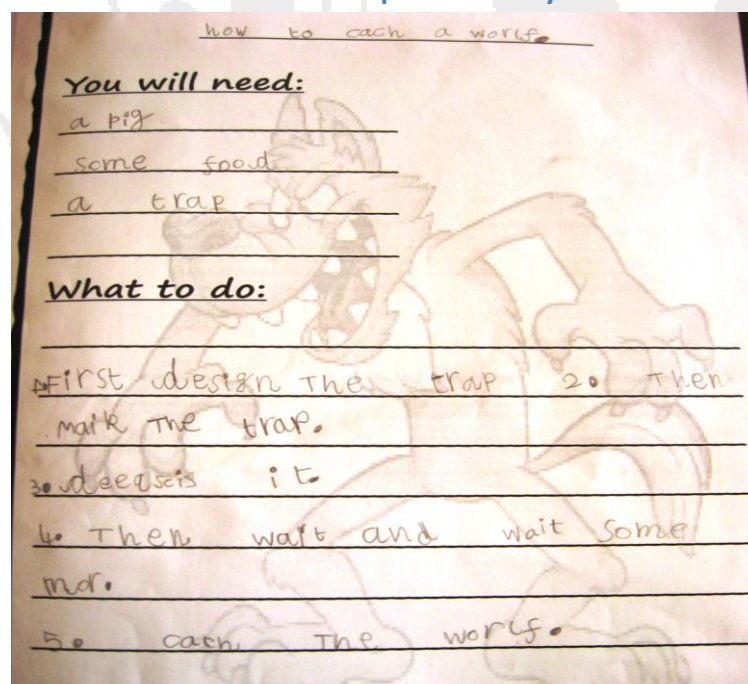 how to cach a worlf.
You will need:
a pig
some food
a trap
What to do:
1. First design The trap 2. Then
maik The trap.
3. deeqseis it
4. Then wait and wait some
mor.
5. cach The worlf.